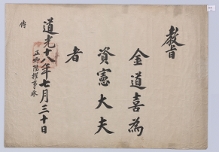 教旨
金道喜為
資憲大夫
者
道光十八年七月三十日